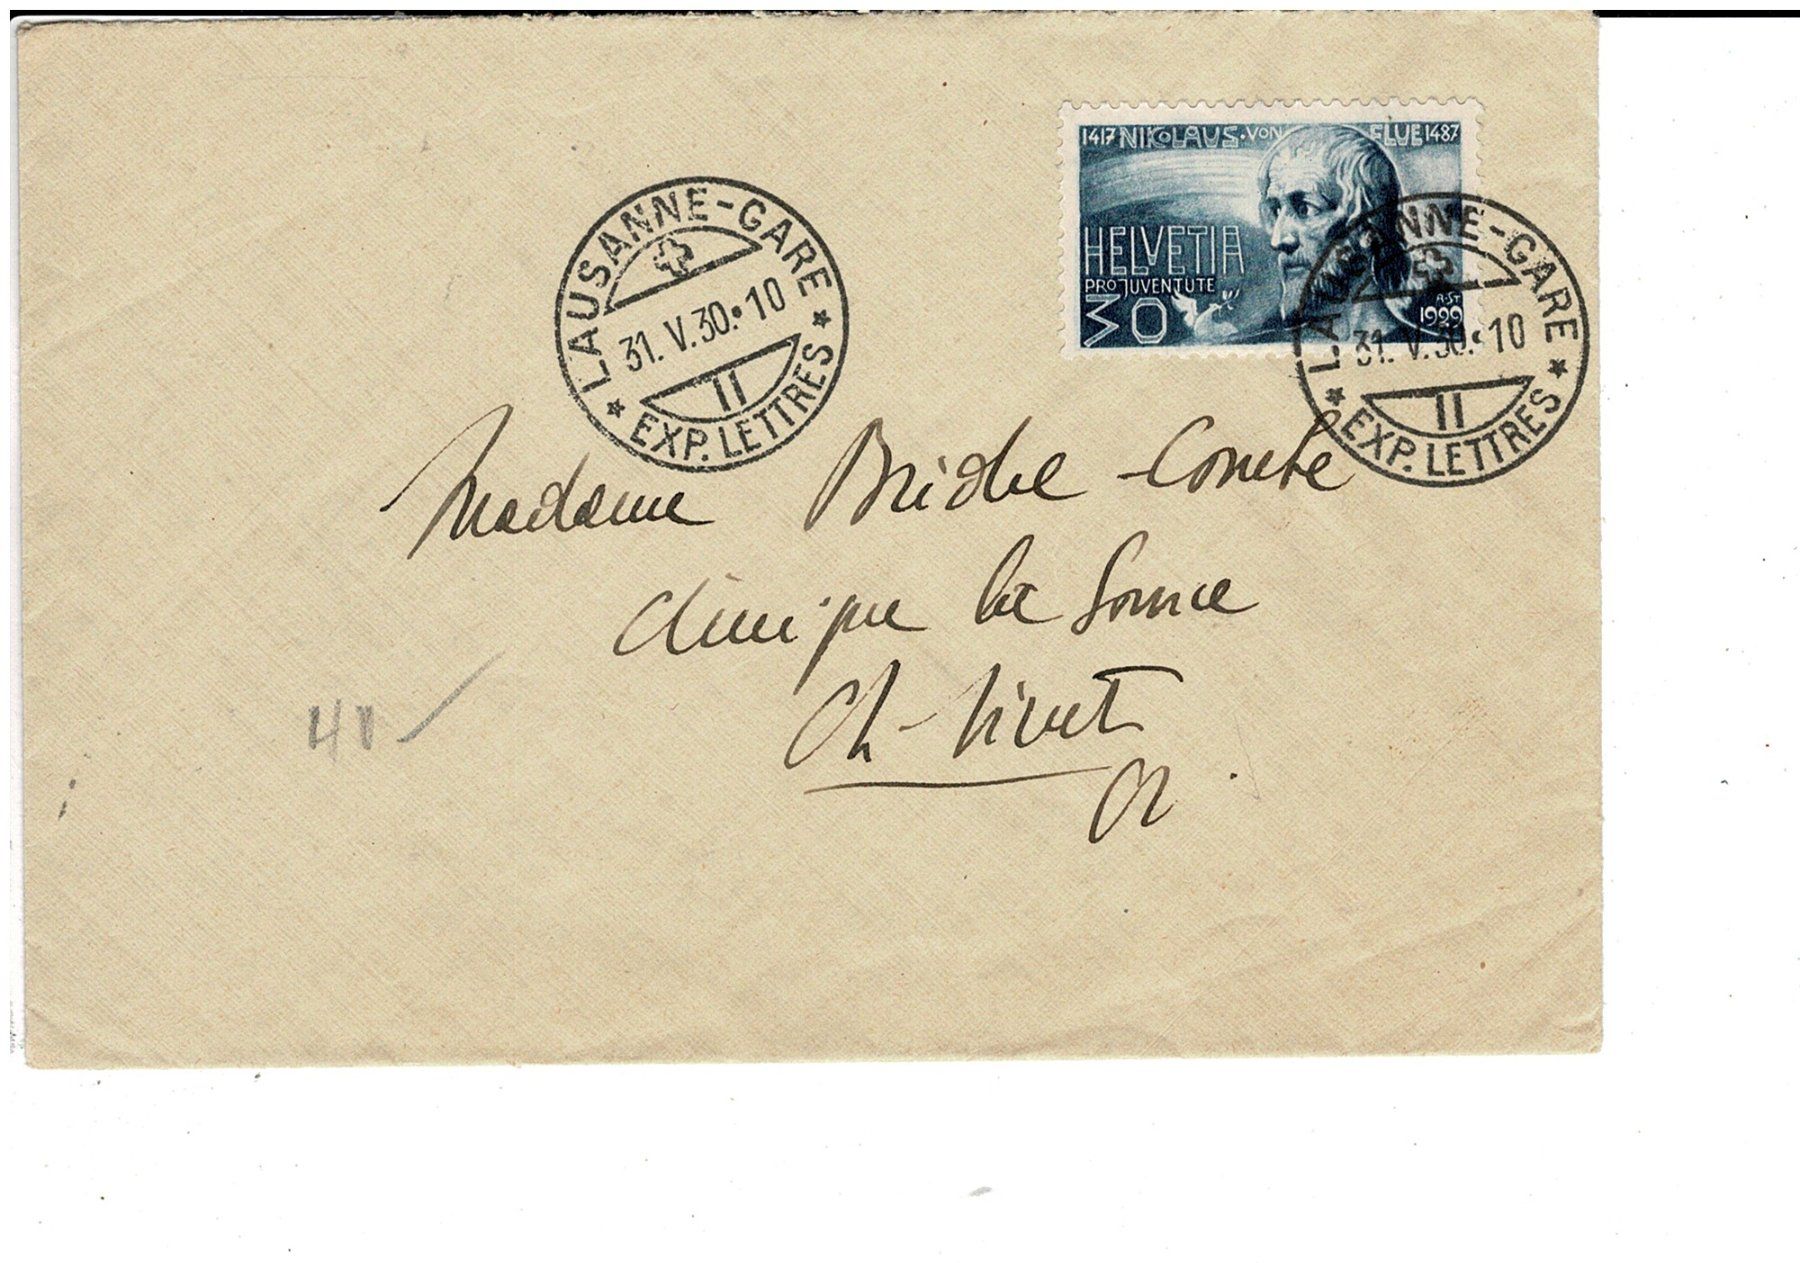 1417 NIKOLAUS·VON FLUE 1487
HELVETIA
PRO JUVENTUTE
30
1929
LAUSANNE-GARE
31.V.30.10
II
* EXP. LETTRES *
LAUSANNE-GARE
31.V.30.10
II
* EXP. LETTRES *
Madame
Clinique la Source